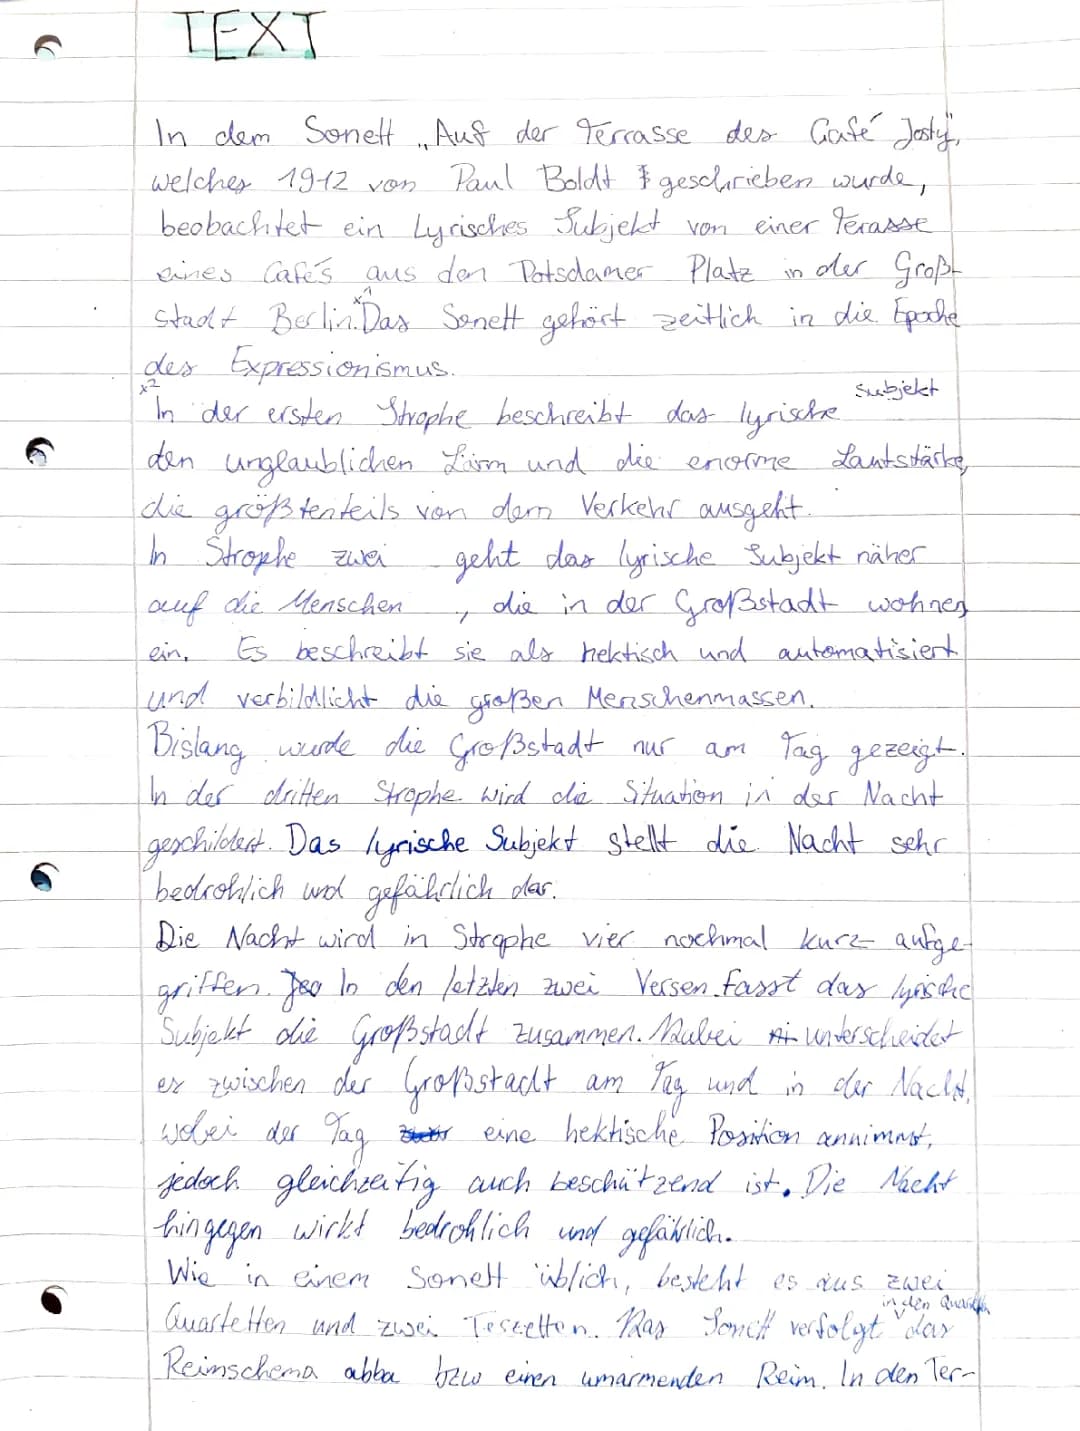 TEXT
In dem Sonett „Auf der Terrasse des Café Josty",
welches 1912 von Paul Boldt geschrieben wurde,
beobachtet ein Lyrisches Subjekt von einer Terasse
eines Cafés aus den Potsdamer Platz in der Groß-
stadt Berlin. x1 Das Sonett gehört zeitlich in die Epoche
des Expressionismus.
x2
In der ersten Strophe beschreibt das lyrische Subjekt
den unglaublichen Lärm und die enorme Lautstärke,
die größtenteils von dem Verkehr ausgeht.
In Strophe zwei geht das lyrische Subjekt näher
auf die Menschen , die in der Großstadt wohnen
ein. Es beschreibt sie als hektisch und automatisiert
und verbildlicht die großen Menschenmassen.
Bislang wurde die Großstadt nur am Tag gezeigt.
In der dritten Strophe wird die Situation in der Nacht
geschildert. Das lyrische Subjekt stellt die Nacht sehr
bedrohlich und gefährlich dar.
Die Nacht wird in Strophe vier nochmal kurz aufge-
griffen. In den letzten zwei Versen fasst das lyrische
Subjekt die Großstadt zusammen. Dabei unterscheidet
es zwischen der Großstadt am Tag und in der Nacht,
wobei der Tag eine hektische Position annimmt,
jedoch gleichzeitig auch beschützend ist. Die Nacht
hingegen wirkt bedrohlich und gefährlich.
Wie in einem Sonett üblich, besteht es aus zwei
Quartetten und zwei Terzetten. Das Sonett verfolgt in den Quartetten das
Reimschema abba bzw einen umarmenden Reim. In den Ter-